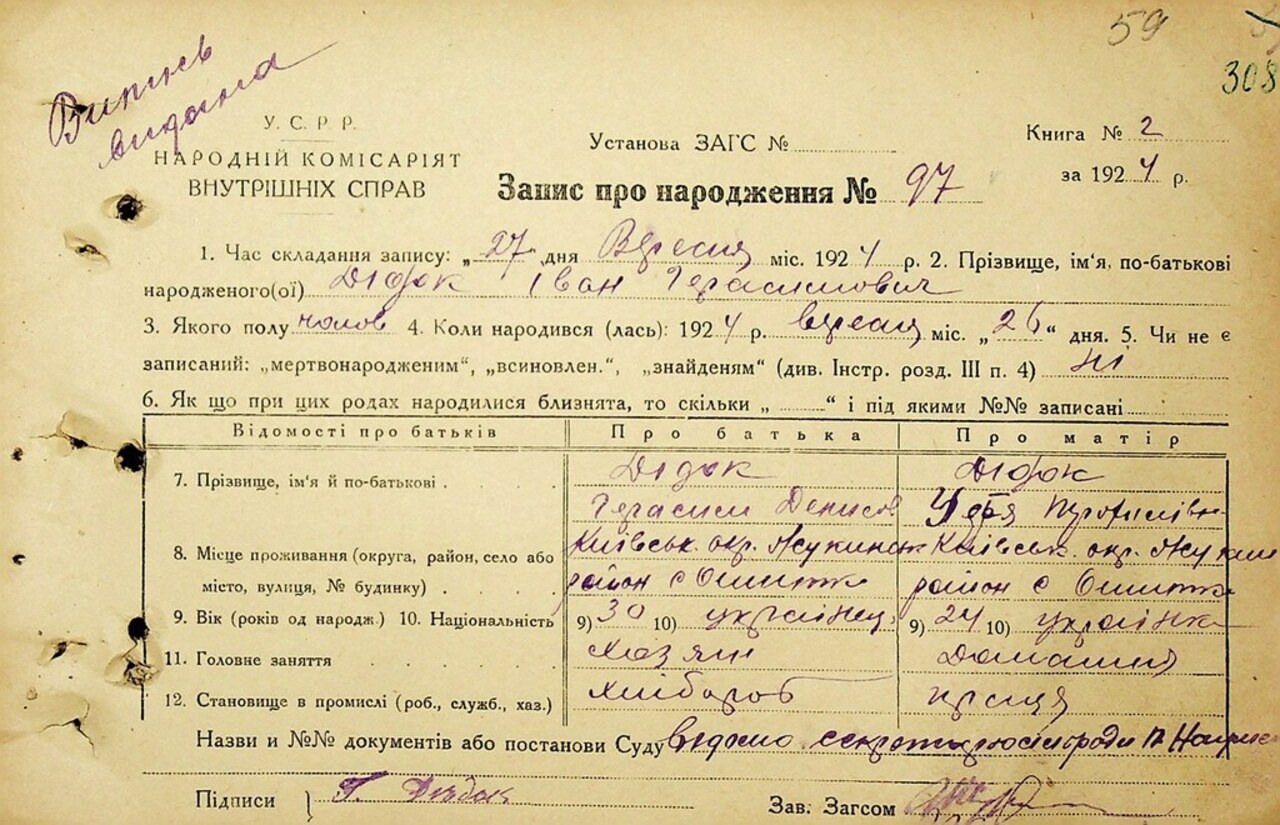 59
308
Випись
видана
У. С. Р. Р.
НАРОДНІЙ КОМІСАРІЯТ
ВНУТРІШНІХ СПРАВ
Установа ЗАГС №
Книга № 2
за 1924 р.
Запис про народження № 97
1. Час складання запису: „27“ дня Вересня міс. 1924 р. 2. Прізвище, ім'я, по-батькові
народженого(ої) Дідок Іван Герасимович
3. Якого полу чолов 4. Коли народився (лась): 1924 р. вересня міс. „26“ дня. 5. Чи не є
записаний: „мертвонародженим“, „всиновлен.“, „знайденям“ (див. Інстр. розд. III п. 4) ні
6. Як що при цих родах народилися близнята, то скільки „ “ і під якими №№ записані
Відомості про батьків Про батька Про матір
7. Прізвище, ім'я й по-батькові Дідок Дідок
Герасим Денисов
8. Місце проживання (округа, район, село або Київськ. окр. Жукинськ Київськ. окр. Жукин
місто, вулиця, № будинку) район с Ошитки район с Ошитки
9. Вік (років од народж.) 10. Національність 9) 30 10) українец 9) 24 10) українка
11. Головне заняття Хазяин Домашня
12. Становище в промислі (роб., служб., хаз.) Хлібороб праця
Назви и №№ документів або постанови Суду відомо
Підписи } Г. Дидок Зав. Загсом